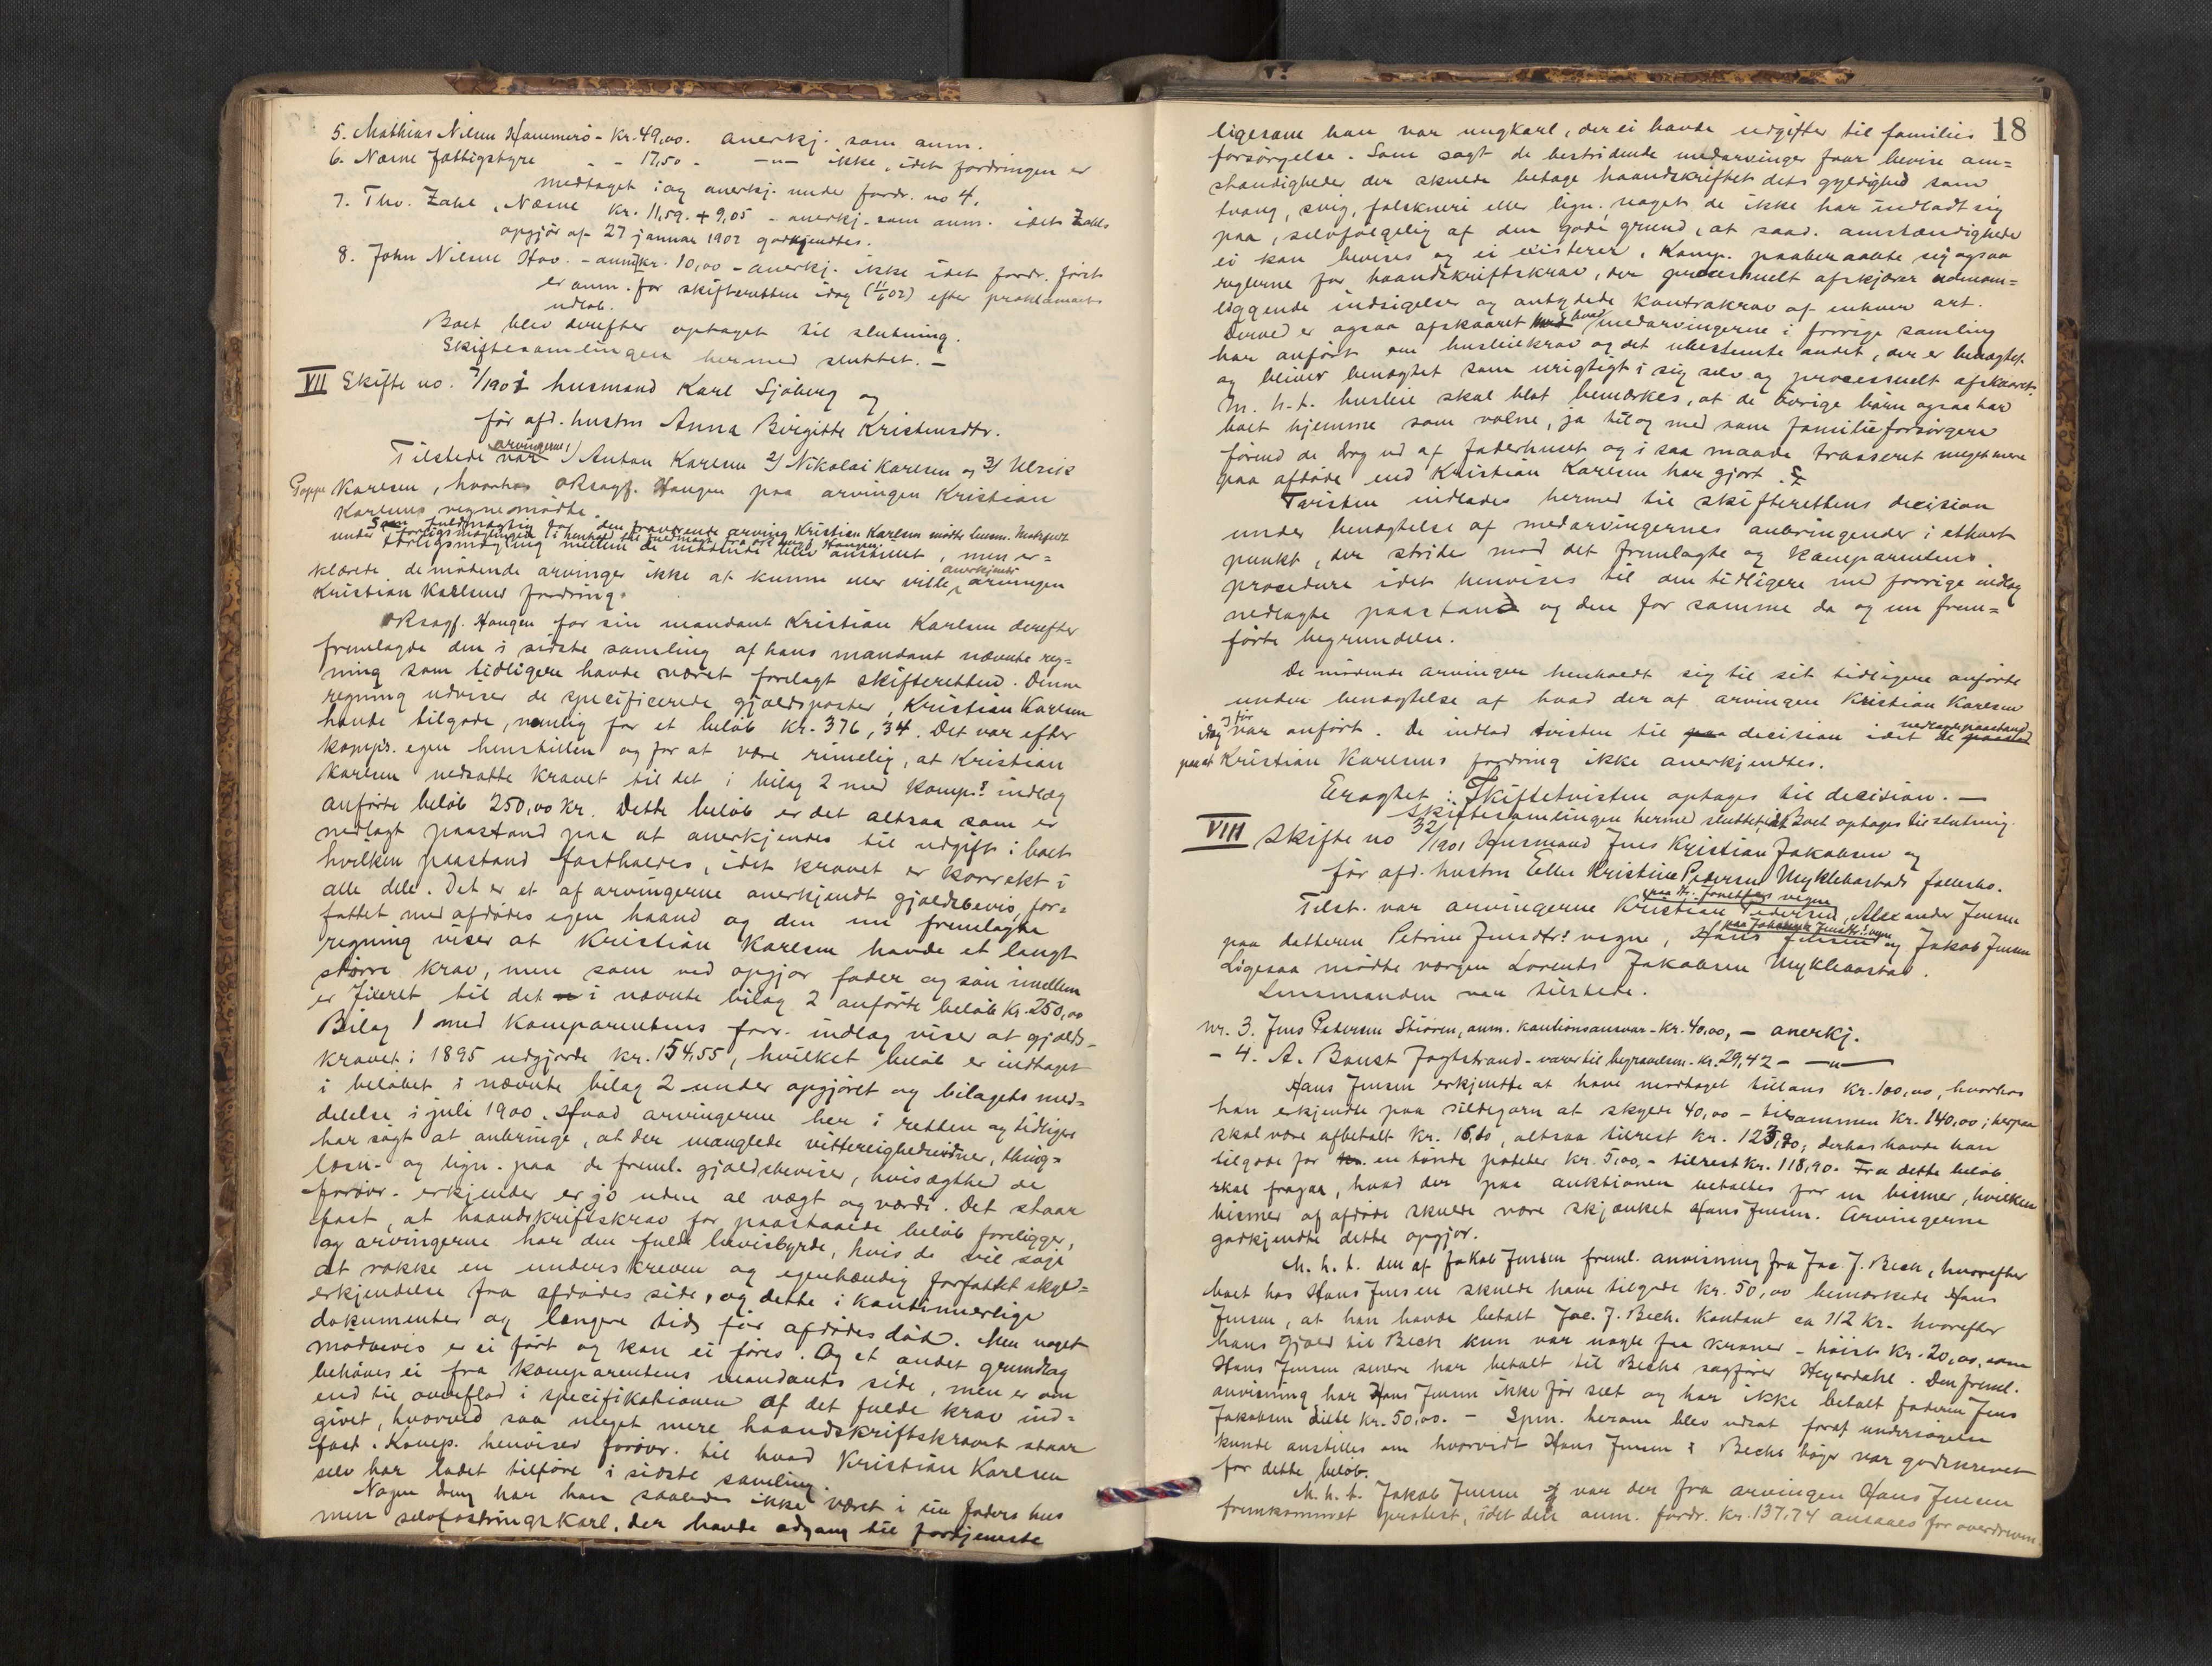 5. Mathias Nilsen Hammerö - Kr. 49,00. anerkj. som anm.
6. Næsne Fattigstyre - - 17,50 - -"- ikke, idet fordringen er
medtaget i og anerkj. under fordr. no 4.
7. Thv. Zahl, Næsne Kr. 11,59. + 9,05 - anerkj. som anm. idet Zahls
opgjör af 27 januar 1902 godkjendtes.
8. John Nilsen Hov. - anm. kr. 10,00 - anerkj. ikke idet fordr. först
er anm. for skifteretten idag (11/6 02) efter proklamaets
udløb.
Boet blev derefter optaget til slutning.
Skiftesamlingen hermed sluttet. -
VII Skifte no. 7/1901 husmand Karl Sjöberg og
för afd. hustru Anna Birgitte Kristensdtr.
Tilstede var arvingerne 1) Anton Karlsen 2) Nikolai Karlsen og 3) Ulrik
Karlsen, hvorhos oRsagf. Haugen paa arvingen Kristian
Karlsens vegne mödte.
Som fuldmægtig for den fraværende arving Kristian Karlsen mödte lensm.
under forligsmæglingen i henhold til fuldmagt fra oRsagf. Haugen.
Forligsmægling mellem de mödende blev anstillet, men er=
klærede de mödende arvinger ikke at kunne eller ville anerkjende arvingen
Kristian Karlsens fordring.
oRsagf. Haugen for sin mandant Kristian Karlsen derefter
fremlagde den i sidste samling af hans mandant nævnte reg=
ning som tidligere havde været forelagt skifteretten. Denne
regning udviser de specificerede gjældsposter, Kristian Karlsen
havde tilgode, nemlig for et belöb Kr. 376,34. Det var efter
komps. egen henstillen og for at være rimelig, at Kristian
Karlsen nedsatte kravet til det i bilag 2 med komps. indlæg
anförte belöb 250,00 Kr. Dette belöb er det altsaa som er
nedlagt paastand paa at anerkjendes til udgift i boet
hvilken paastand fastholdes, idet kravet er korrekt i
alle dele. Det er et af arvingerne anerkjendt gjældsbevis, for=
fattet med afdödes egen haand og den nu fremlagte
regning viser at Kristian Karlsen havde et langt
större krav, men som ved opgjör fader og sön imellem
er fixeret til det i nævnte bilag 2 anförte belöb Kr. 250,00
Bilag 1 med komparentens forr. indlæg viser at gjælds-
kravet i 1895 udgjorde Kr. 154,55, hvilket belöb er indtaget
i belöbet i nævnte bilag 2 under opgjöret og bilagets med=
delelse i juli 1900. Hvad arvingerne her i retten og tidligere
har sögt at anbringe, at der manglede vitterlighedsvidner, thing=
læsn. og lign. paa de freml. gjældsbeviser, hvis ægthed de
forövr. erkjender er jo uden al vægt og værdi. Det staar
fast, at haandskriftskrav for paastaaede belöb foreligger,
og arvingerne har den fulde bevisbyrde, hvis de vil söge
at rokke en underskreven og egenhændig forfattet skyld=
erkjendelse fra afdödes side, og dette i kontinuerlige
dokumenter og længere tids för afdödes död. Men noget
modbevis er ei fört og kan ei föres. Og et andet grundlag
behöves ei fra komparentens mandants side, men er om
end til overflod i specifikationen af det fulde krav ind=
givet, hvorved saa meget mere haandskriftskravet staar
fast. Komp. henviser forövr. til hvad Kristian Karlsen
selv har ladet tilföre i sidste samling.
Nogen dreng har han saaledes ikke været i sin faders hus
men selvfostringskarl, der havde adgang til fortjeneste
18
ligesom han var ungkarl, der ei havde udgifter til families
forsörgelse. Som sagt de bestridende medarvinger faar bevise om=
stændigheder der skulde betage haandskriftet dets gyldighed som
tvang, svig, falskneri eller lign., noget de ikke har indladt sig
paa, selvfölgelig af den gode grund, at saad. omstændigheder
ei kan bevises og ei existerer. Komp. paaberaabte sig ogsaa
reglerne for haandskriftskrav, der processuelt afskjærer udenom=
liggende indsigelser og antydede kontrakrav af enhver art.
Derved er ogsaa afskaaret hvad medarvingerne i forrige samling
har anfört om husleiekrav og det ubestemte andet, der er benægtet
og bliver benægtet som urigtigt i sig selv og processuelt afskaaret.
M. h. t. husleie skal blot bemærkes, at de övrige börn ogsaa har
boet hjemme som voksne, ja til og med som familieforsörgere
förend de drog ud af faderhuset og i saa maade trasseret meget mere
paa afdöde end Kristian Karlsen har gjort.
Tvisten indlades hermed til skifterettens decision
under benægtelse af medarvingernes anbringender i ethvert
punkt, der strider mod det fremlagte og komparentens
procedure idet henvises til den tidligere med forrige indlæg
nedlagte paastand og den for samme da og nu frem=
förte begrundelse.
De mödende arvinger henholdt sig til sit tidligere anförte
under benægtelse af hvad der af arvingen Kristian Karlsen
idag og för var anfört. De indlod tvisten til decision idet de nedlagde paastand
paa at Kristian Karlsens fordring ikke anerkjendtes.
Eragtet: Skiftetvisten optages til decision. -
Skiftesamlingen hermed sluttet, idet Boet optages til slutning.
VIII Skifte no 32/1901 Husmand Jens Kristian Jakobsen og
för afd. hustru Ellen Kristine Pedersen Myklebostads fællesbo.
Tilst. var arvingerne Kristian Pedersen, Alexander Jensen
paa datteren Petrine Jensdtrs. vegne, Hans Jensen og Jakob Jensen
Ligesaa mödte værgen Lorents Jakobsen Myklebostad.
Lensmanden var tilstede.
nr. 3. Jens Pedersen Stioren, anm. kautionsansvar - Kr. 40,00, - anerkj.
- 4. A. Baust Fagtstrand - varer til begravelsen - Kr. 29,42 - -"-
Hans Jensen erkjendte at have modtaget tillaans Kr. 100,00, hvorhos
han erkjendte paa sildegarn at skylde 40,00 - tilsammen Kr. 140,00; herpaa
skal være afbetalt Kr. 16,10, altsaa tilrest Kr. 123,90; derhos havde han
tilgode for en tönde poteter Kr. 5,00, - tilrest Kr. 118,90. Fra dette belöb
skal fragaa, hvad der paa auktionen betaltes for en bismer, hvilken
bismer af afdöde skulde være skjænket Hans Jensen. Arvingerne
godkjendte dette opgjör.
M. h. t. den af Jakob Jensen freml. anvisning fra Jac. J. Bech, hvorefter
boet hos Hans Jensen skulde have tilgode Kr. 50,00 bemærkede Hans
Jensen, at han havde betalt Jac. J. Bech kontant ca 112 Kr. hvorefter
hans gjæld til Bech kun var nogle faa kroner - höist Kr. 20,00, som
Hans Jensen senere har betalt til Bechs sagförer Heyerdahl. Den freml.
anvisning har Hans Jensen ikke för seet og har ikke betalt faderen Jens
Jakobsen disse Kr. 50,00. - Spm. herom blev udsat forat undersögelse
kunde anstilles om hvorvidt Hans Jensen i Bechs böger var godskrevet
for dette belöb.
M. h. t. Jakob Jensen var der fra arvingen Hans Jensen
fremkommet protest, idet den anm. fordr. Kr. 137,74 ansaaes for overdreven.